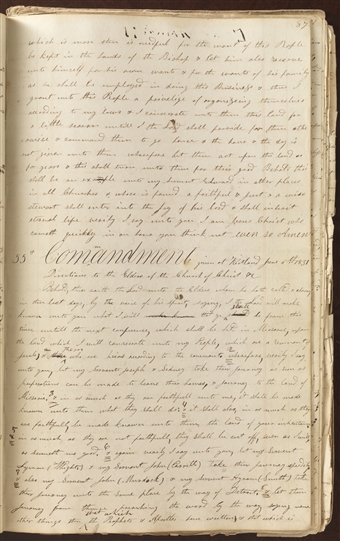 87
which is more than is needful for the want of this People
be kept in the hands of the Bishop & let him also reserve
unto himself for his own wants & for the wants of his family
as he shall be employed in doing this Business & thus I
grant unto this People a privelege of organizeing themselves
according to my laws & I consecrate unto them this land for
a little season untill I the Lord shall provide for them other
wise & command them to go hence & the hour & the day is
not given unto them wherefore let them act upon this land as
for years & this shall turn unto them for their good Behold this
shall be an example unto my Servent Edward in other places
in all Churches & whoso is found a faithful & just & a wise
steward shall enter into the joy of his Lord & shall inherit
eternal life verely I say unto you I am Jesus Christ who
cometh quickly in an hour you think not even so Amen
55th Comandment given at Kirtland June 1831
Directions to the Elders of the Church of Christ &c
Behold thus saith the Lord unto the Elders whom he hath called & chosen
in these last days, by the voice of his Spirit, saying, I the Lord will make
known unto you what I will that ye shall do from this
time untill the next conference, which shall be held in Missorie, upon
the land which I will consecrate unto my People, which are a remnant of
Jacob, & those who are heirs according to the covenant wherefore, verely I say
unto you, let my Servent Joseph & Sidney take their journey as soon as
preparations can be made to leave their homes, & journey to the land of
Missorie, & in as much as they are faithfull unto me, it shall be made
known unto them what they shall do & it shall also, in as much as they
are faithfully, be made known unto them the land of your inheritance
in as much as they are not faithfull, they shall be cut off, even as I will
as seemeth me good & again verely I say unto you, let my Servent
Lyman (Wight) & my Servent John (Carrill) take their journey speedily
& also my Servent John (Murdock) & my Servent Hyram (Smith) take
their journey unto the same place by the way of Detroit & let them
journey from thence preaching the word by the way saying none
other things than that which the Prophets & Apostles have written & that which is